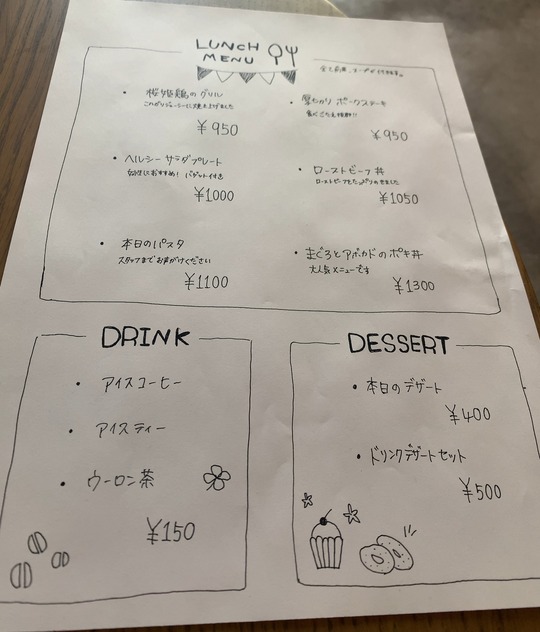 LUNCH
MENU
全て前菜、スープが付きます。
・桜姫鶏のグリル
こんがりジューシーに焼き上げました
¥950
・厚切り ポークステーキ
食べごたえ抜群!!
¥950
・ヘルシー サラダプレート
女性におすすめ! バゲット付き
¥1000
・ローストビーフ丼
ローストビーフをたっぷりのせました
¥1050
・本日のパスタ
スタッフまでお声がけください
¥1100
・まぐろとアボカドのポキ丼
大人気メニューです
¥1300
DRINK
・アイスコーヒー
・アイスティー
・ウーロン茶
¥150
DESSERT
・本日のデザート
¥400
・ドリンクデザートセット
¥500